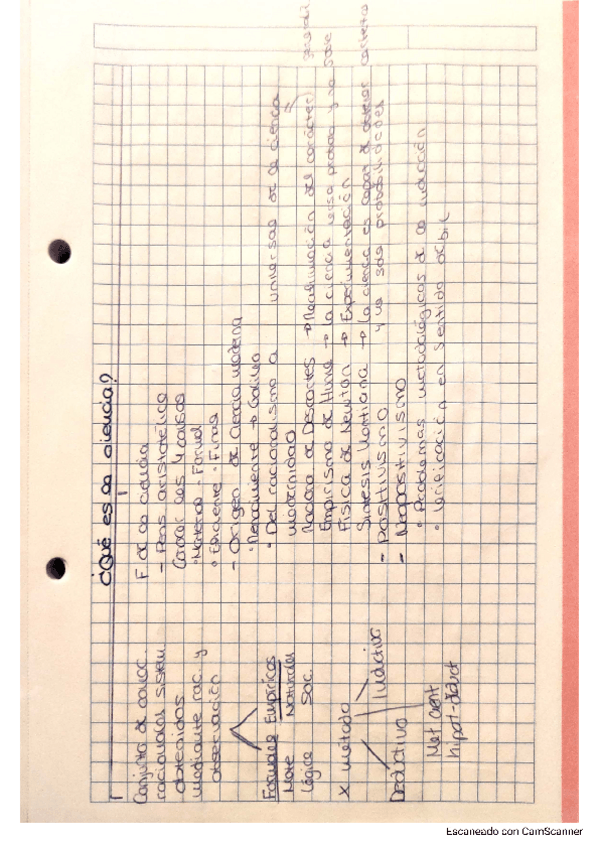 ¿Qué es la ciencia?
Conjunto de conoc.
racionales sistem.
obtenidos
mediante rac. y
observación
Formales Empíricas
Mate Naturales
Lógica Soc.
x método
Deductivo Inductivo
Met cient
hipot-deduct
F. de la ciencia
- Pens aristotélico
4 causas
· Material · Formal
· Eficiente · Final
- Origen de ciencia moderna
Renacimiento → Galileo
· Del racionalismo a universal de la ciencia
modernidad
de Descartes → del carácter
Empirismo de Hume → la ciencia es probable y no
Física de Newton → Experimentación
Síntesis Kantiana → la ciencia es capaz de certeza
y no solo probabilidades
- Positivismo
- Neopositivismo
· Problemas metodológicos de la inducción
· Verificación en sentido débil
Escaneado con CamScanner